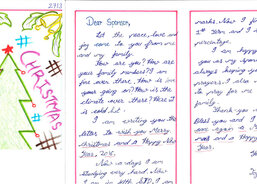 2713
# CHRISTMAS #
Dear Sponsor,
Let the peace, love and
joy come to you from me
and my family.
How are you? How are
your family members? I am
fine over there. How is
your going on? How is the
climate over there? Here it
is cold
I am writing you this
letter to wish you Merry
Christmas and a Happy New
Year, 2016.
Now a days I am
studying very hard. Now
I am in 5th STD, I
marks. Now I
1st Term and I
percentage.
I am happy
you as my spons
always keeping
prayers. I
to pray for me
family.
Thank you
bless you and I
once again a M
and a Happy
Year.